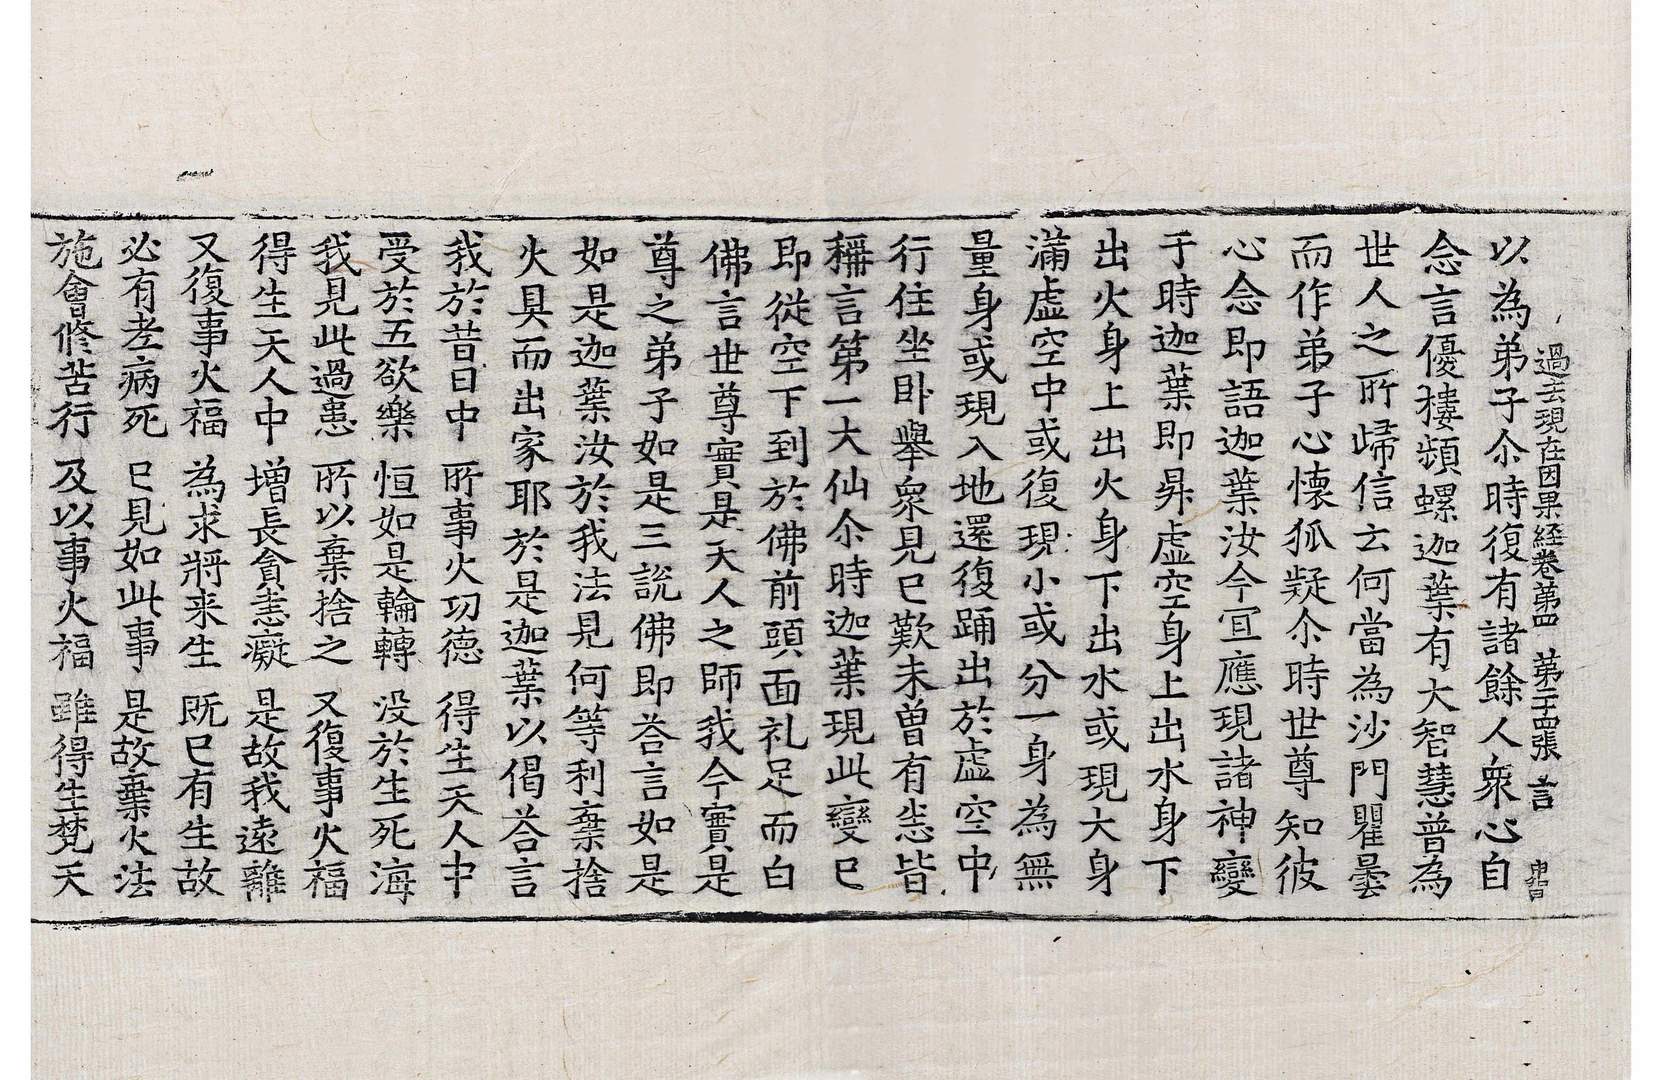 過去現在因果経卷第四 第二十四張 言
以為弟子尒時復有諸餘人衆心自
念言優樓頻螺迦葉有大智慧普為
世人之所歸信云何當為沙門瞿曇
而作弟子心懷狐疑尒時世尊知彼
心念即語迦葉汝今宜應現諸神變
于時迦葉即昇虛空身上出水身下
出火身上出火身下出水或現大身
滿虛空中或復現小或分一身為無
量身或現入地還復踊出於虛空中
行住坐卧舉衆見已歎未曾有恙皆
稱言第一大仙尒時迦葉現此變已
即從空下到於佛前頭面礼足而白
佛言世尊實是天人之師我今實是
尊之弟子如是三說佛即荅言如是
如是迦葉汝於我法見何等利棄捨
火具而出家耶於是迦葉以偈荅言
我於昔日中 所事火功德 得生天人中
受於五欲樂 恒如是輪轉 没於生死海
我見此過患 所以棄捨之 又復事火福
得生天人中 增長貪恚癡 是故我遠離
又復事火福 為求將来生 既已有生故
必有老病死 已見如此事 是故棄火法
施會修苦行 及以事火福 雖得生梵天